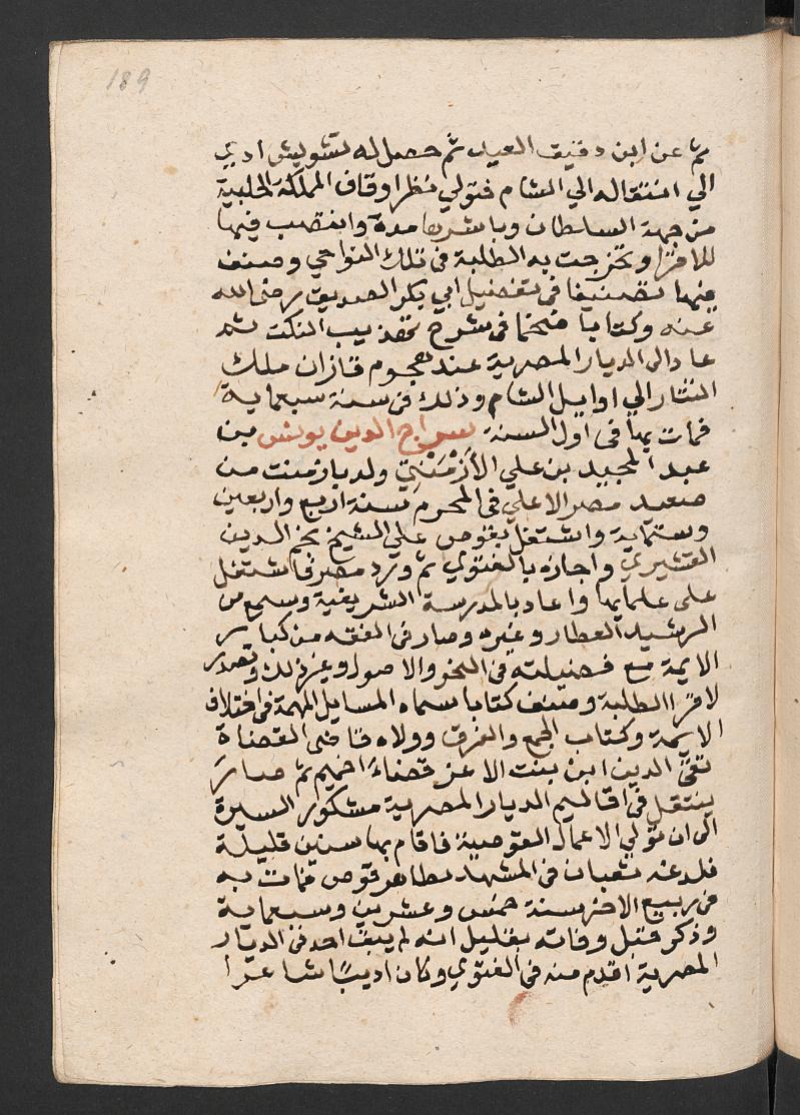 189
ثم عن ابن دقيق العيد ثم حصل له تشويش ادي
الي انتقاله الي الشام فتولي نظر اوقاف المملكة الحلبية
من جهة السلطان وباشرها مدة وانتصب فيها
للاقرا وتخرجت به الطلبة في تلك النواحي وصنف
فيها تصنيفا في تفضيل ابي بكر الصديق رضي الله
عنه وكتابا ضخما في شرح تهذيب النكت ثم
عاد الى الديار المصرية عند هجوم قازان ملك
التتار الي اوايل الشام وذلك في سنة سبعماية
فمات بها في اول السنة سراج الدين يونس بن
عبد المجيد بن علي الأَرْمَنْتِي ولد بارمنت من
صعيد مصر الاعلي في المحرم سنة اربع واربعين
وستماية واشتغل بقوص علي الشيخ نجم الدين
القشيري واجازه بالفتوي ثم ورد مصر فاشتغل
على علمايها واعاد بالمدرسة الشريفية وسمع من
الرشيد العطار وغيره وصار في الفقه من كبار
الايمة مع فضيلته في النحو والاصول وغير ذلك وتصدر
لاقرا الطلبة وصنف كتابا سماه المسايل المهمة في اختلاف
الايمة وكتاب الجمع والفرق وولاه قاضي القضاة
تقي الدين ابن بنت الاعز قضاء اخميم ثم صار
ينتقل في اقاليم الديار المصرية مشكور السيرة
الى ان تولي الاعمال القوصية فاقام بها سنين قليلة
فلدغه ثعبان في المشهد بظاهر قوص فمات به
في ربيع الاخر سنة خمس وعشرين وسبعماية
وذكر قبل وفاته بقليل انه لم يبق احد في الديار
المصرية اقدم منه في الفتوي وكان اديبًا شاعرا